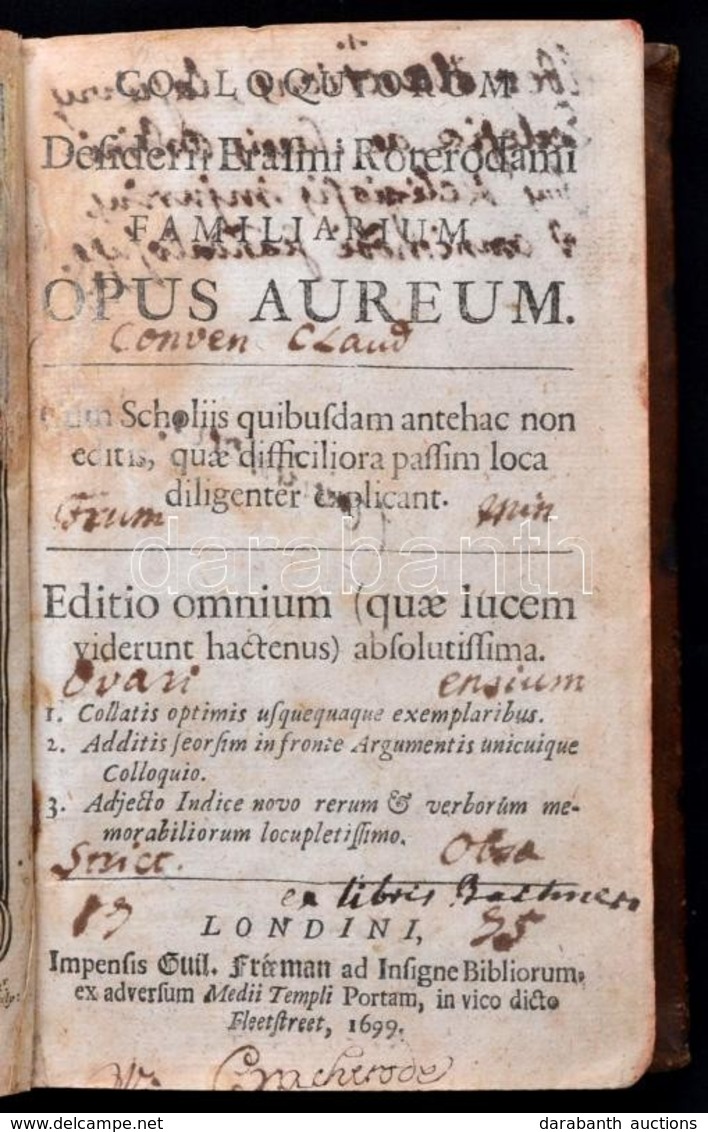 COLLOQUIORUM
Deſiderii Eraſmi Roterodami
FAMILIARIUM
OPUS AUREUM.
Conven Claud
Cum Scholiis quibuſdam antehac non
editis, quæ difficiliora paſſim loca
diligenter explicant.
Frum Min
darabanth
Editio omnium (quæ lucem
viderunt hactenus) abſolutiſſima.
Ovari ensium
1. Collatis optimis uſquequaque exemplaribus.
2. Additis ſeorſim in fronte Argumentis unicuique
Colloquio.
3. Adjecto Indice novo rerum & verborùm me-
morabiliorum locupletiſſimo.
Strict. Obsa
ex libris
LONDINI,
Impenſis Guil. Freeman ad Inſigne Bibliorum,
ex adverſum Medii Templi Portam, in vico dicto
Fleetſtreet, 1699.
darabanth auctions